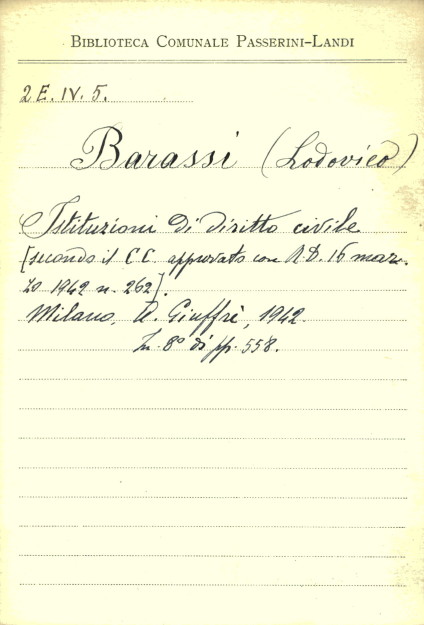 BIBLIOTECA COMUNALE PASSERINI-LANDI
2 E. IV. 5.
Barassi (Lodovico)
Istituzioni di diritto civile
[secondo il C. C. approvato con R. D. 16 mar-
zo 1942 n. 262].
Milano, A. Giuffrè, 1942.
In. 8º di pp. 558.